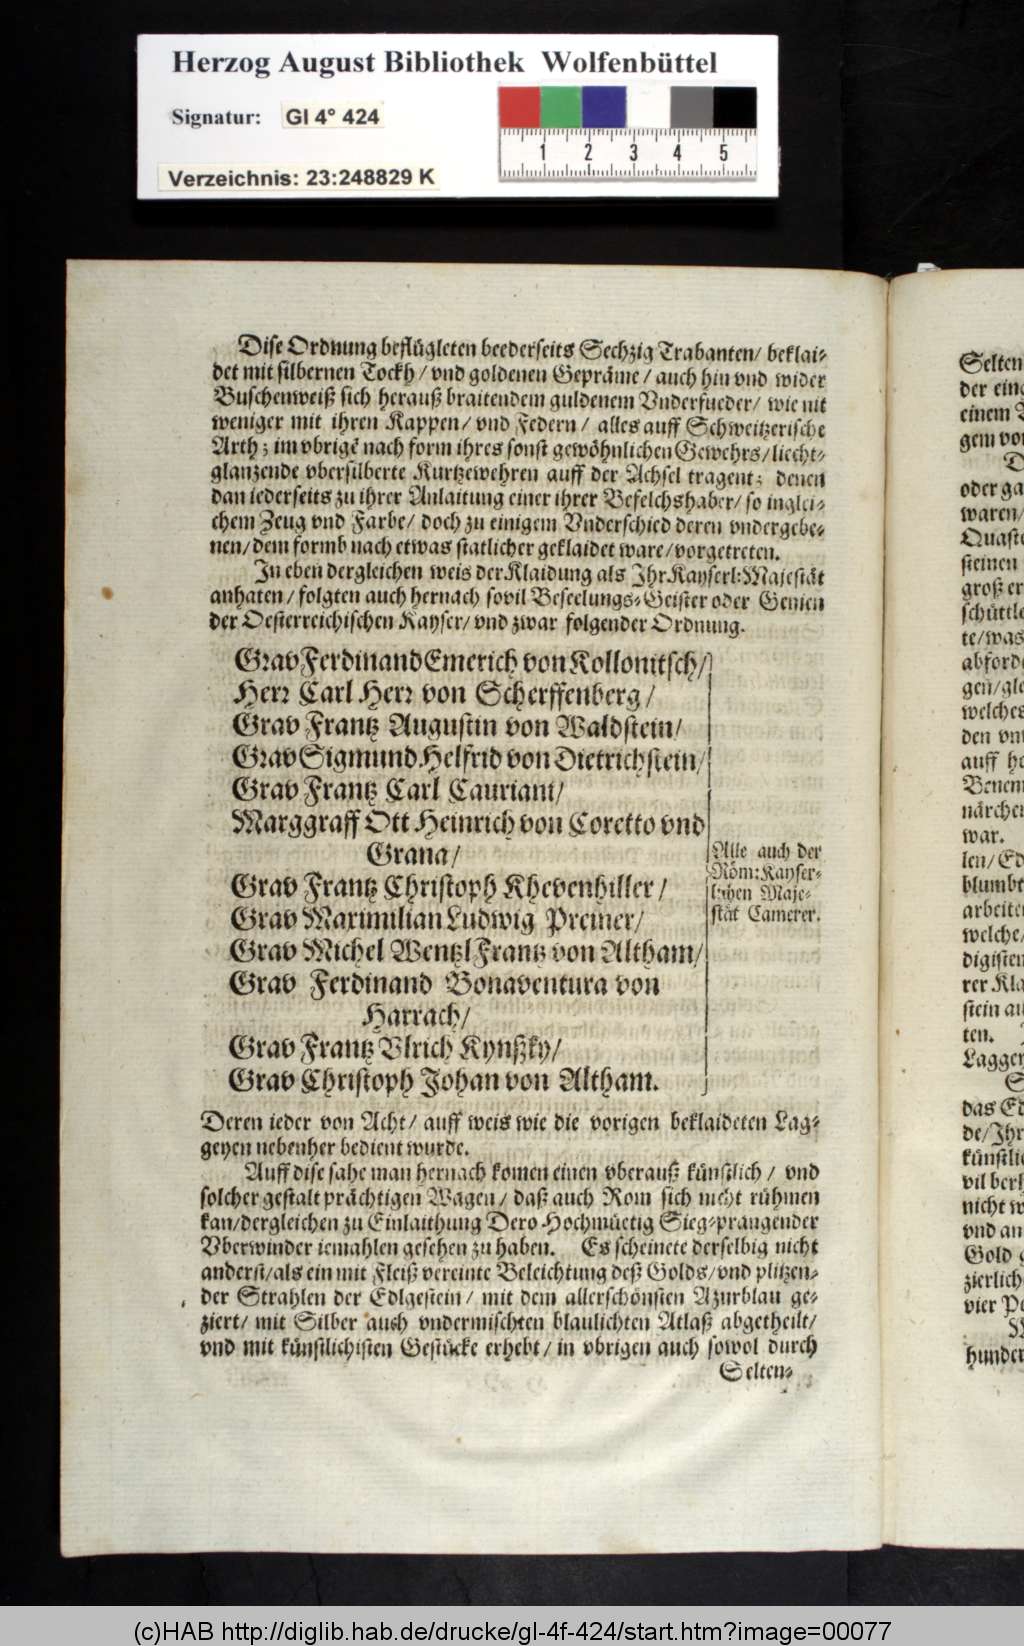 Herzog August Bibliothek Wolfenbüttel
Signatur: Gl 4° 424
1 2 3 4 5
Verzeichnis: 23:248829 K
Dise Ordnung beflügleten beederseits Sechzig Trabanten/ beklai-
det mit silbernen Tockh/ vnd goldenen Gepräme/ auch hin vnd wider
Buschenweiß sich herauß braitendem guldenem Vnderfueder/ wie nit
weniger mit ihren Kappen/ vnd Federn/ alles auff Schweitzerische
Arth; im vbrigē nach form ihres sonst gewöhnlichen Gewehrs/ liecht-
glanzende vbersilberte Kurtzewehren auff der Achsel tragent; denen
dan iederseits zu ihrer Anlaitung einer ihrer Befelchshaber/ so inglei-
chem Zeug vnd Farbe/ doch zu einigem Vnderschied deren vndergebe-
nen/ dem formb nach etwas statlicher geklaidet ware/ vorgetreten.
In eben dergleichen weis der Klaidung als Ihr Kayserl: Majestät
anhaten/ folgten auch hernach sovil Beseelungs-Geister oder Genien
der Oesterreichischen Kayser/ vnd zwar folgender Ordnung.
Grav Ferdinand Emerich von Kollonitsch/
Herr Carl Herr von Scherffenberg/
Grav Frantz Augustin von Waldstein/
Grav Sigmund Helfrid von Dietrichstein/
Grav Frantz Carl Cauriani/
Marggraff Ott Heinrich von Coretto vnd
Grana/
Grav Frantz Christoph Khevenhiller/
Grav Maximilian Ludwig Preiner/
Grav Michel Wentzl Frantz von Altham/
Grav Ferdinand Bonaventura von
Harrach/
Grav Frantz Vlrich Kynßky/
Grav Christoph Johan von Altham.
Alle auch der
Röm: Kayser-
lichen Maje-
stät Camerer.
Deren ieder von Acht/ auff weis wie die vorigen beklaideten Lag-
geyen nebenher bedient wurde.
Auff dise sahe man hernach komen einen vberauß künstlich/ vnd
solcher gestalt prächtigen Wagen/ daß auch Rom sich nicht rühmen
kan/ dergleichen zu Einlaithung Dero Hochmüetig Sieg-prangender
Vberwinder iemahlen gesehen zu haben. Es scheinete derselbig nicht
anderst/ als ein mit Fleiß vereinte Beleichtung deß Golds/ vnd plitzen-
der Strahlen der Edlgestein/ mit dem allerschönsten Azurblau ge-
ziert/ mit Silber auch vndermischten blaulichten Atlaß abgetheilt/
vnd mit künstlichisten Gestücke erhebt/ in vbrigen auch sowol durch
Selten-
Selten
der ein
einem
gem vo
oder ga
waren/
Quast
steinen
groß er
schüttle
te/ was
abford
gen/ gle
welches
den vn
auff he
Benem
närche
war.
len/ Ed
blumbt
arbeite
welche/
digisten
rer Kla
stein au
ten.
Laggey
das Ed
de/ Ihr
künstli
vil berh
nicht w
vnd an
Gold
zierlich
vier Pe
hunder
(c)HAB http://diglib.hab.de/drucke/gl-4f-424/start.htm?image=00077